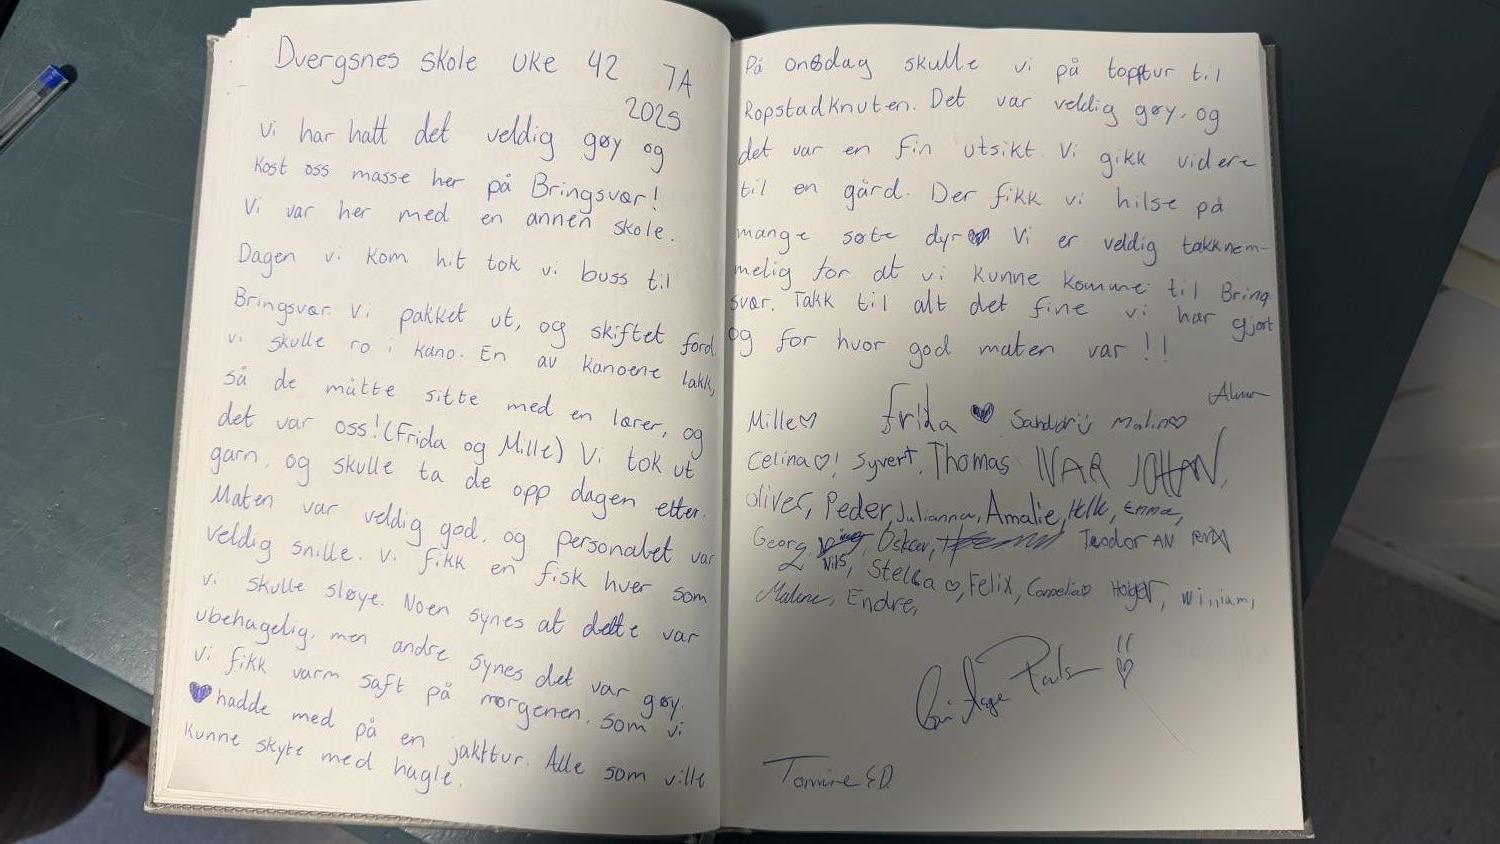 Dvergsnes skole uke 42 7A
2025
Vi har hatt det veldig gøy og
kost oss masse her på Bringsvær!
Vi var her med en annen skole.
Dagen vi kom hit tok vi buss til
Bringsvær. Vi pakket ut, og skiftet ford
vi skulle ro i kano. En av kanoene lakk,
så de måtte sitte med en lærer, og
det var oss! (Frida og Mille) Vi tok ut
garn, og skulle ta de opp dagen etter.
Maten var veldig god, og personalet var
veldig snille. Vi fikk en fisk hver som
vi skulle sløye. Noen synes at dette var
ubehagelig, men andre synes det var gøy.
Vi fikk varm saft på morgenen, som vi
hadde med på en jakttur. Alle som ville
kunne skyte med hagle.
På onsdag skulle vi på topptur til
Ropstadknuten. Det var veldig gøy, og
det var en fin utsikt. Vi gikk videre
til en gård. Der fikk vi hilse på
mange søte dyr Vi er veldig takknem-
melig for at vi kunne komme til Bring
svær. Takk til alt det fine vi har gjort
og for hvor god maten var !!
Mille♡ frida Malin♡
Celina♡! Syvert, Thomas IVAR JOHAN,
Oliver, Peder, Julianna, Amalie, Emma,
Georg, Oskar, Teodor AN
Nils, Stella♡, Felix, Cornelia♡ Holger, William,
Malene, Endre,
Tomine E.D.